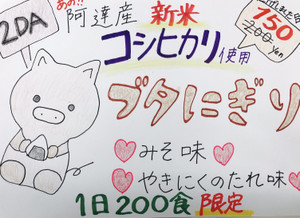 2DA
あの!!
阿達産 新米
コシヒカリ使用
150
200
yen
ブタにぎり
みそ味
やきにくのたれ味
1日200食限定